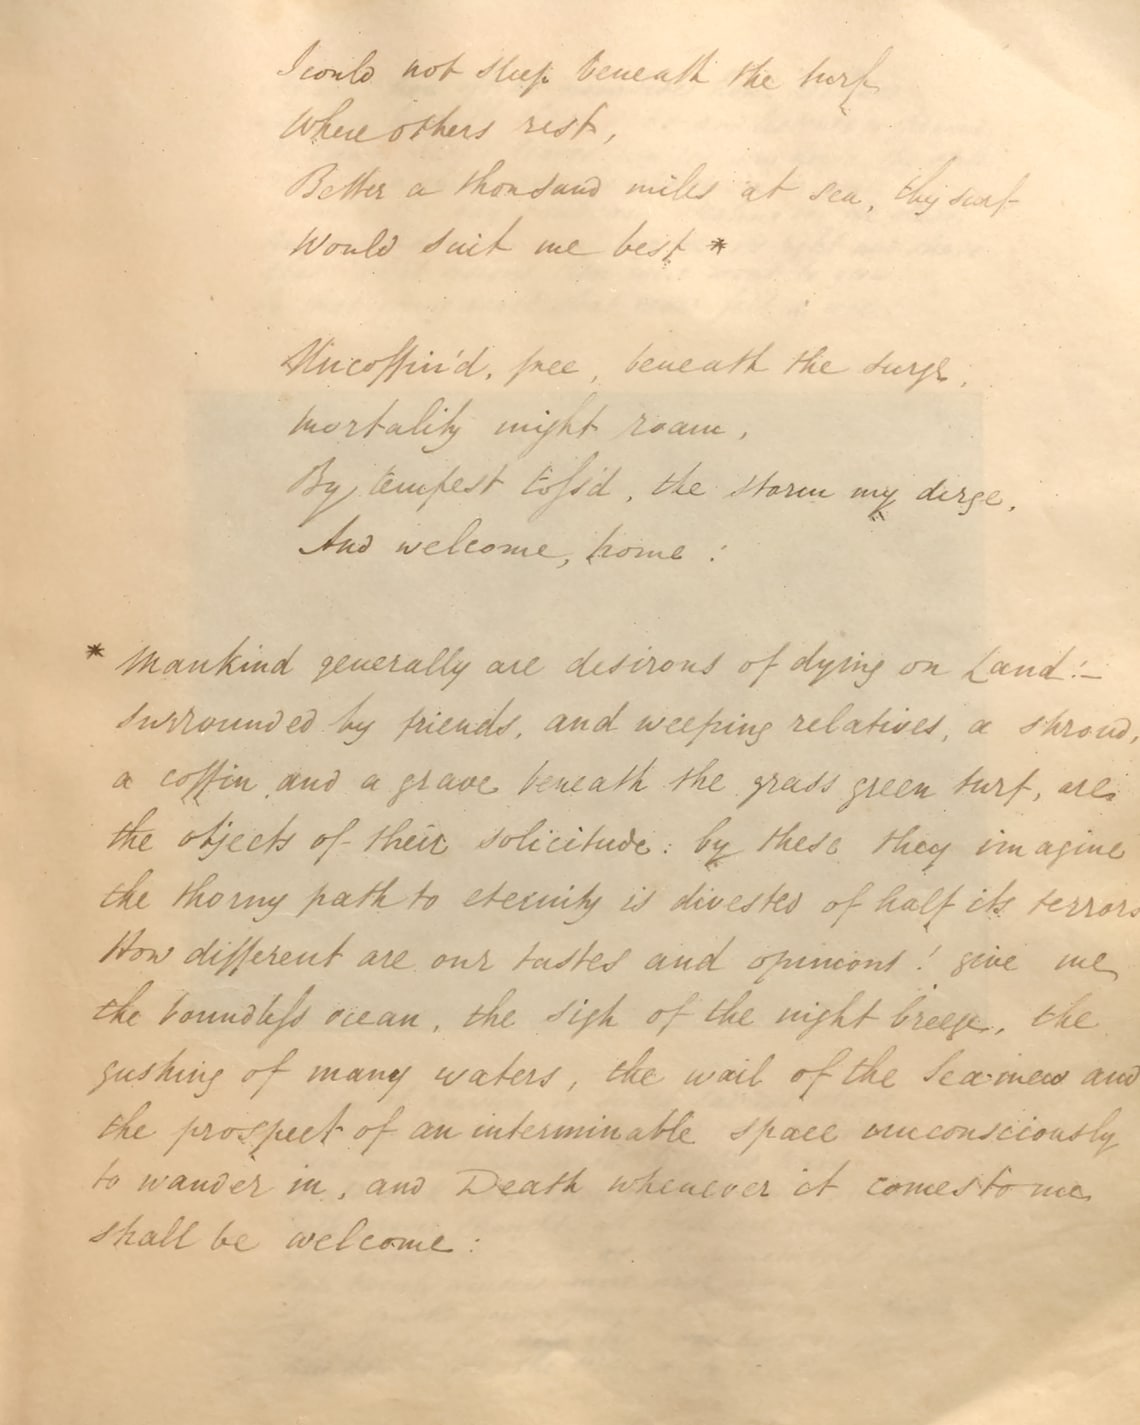 I could not sleep beneath the turf
Where others rest,
Better a thousand miles at sea, thy surf
Would suit me best *
Uncoffin'd, free, beneath the surge,
Mortality might roam,
By tempest toss'd, the storm my dirge,
And welcome, home :
* Mankind generally are desirous of dying on Land :–
surrounded by friends, and weeping relatives, a shroud,
a coffin and a grave beneath the grass green turf, are
the objects of their solicitude : by these they imagine
the thorny path to eternity is divested of half its terrors
How different are our tastes and opinions ! give me
the boundless ocean, the sigh of the night breeze, the
gushing of many waters, the wail of the Sea-mew and
the prospect of an interminable space unconsciously
to wander in, and Death whenever it comes to me
shall be welcome :